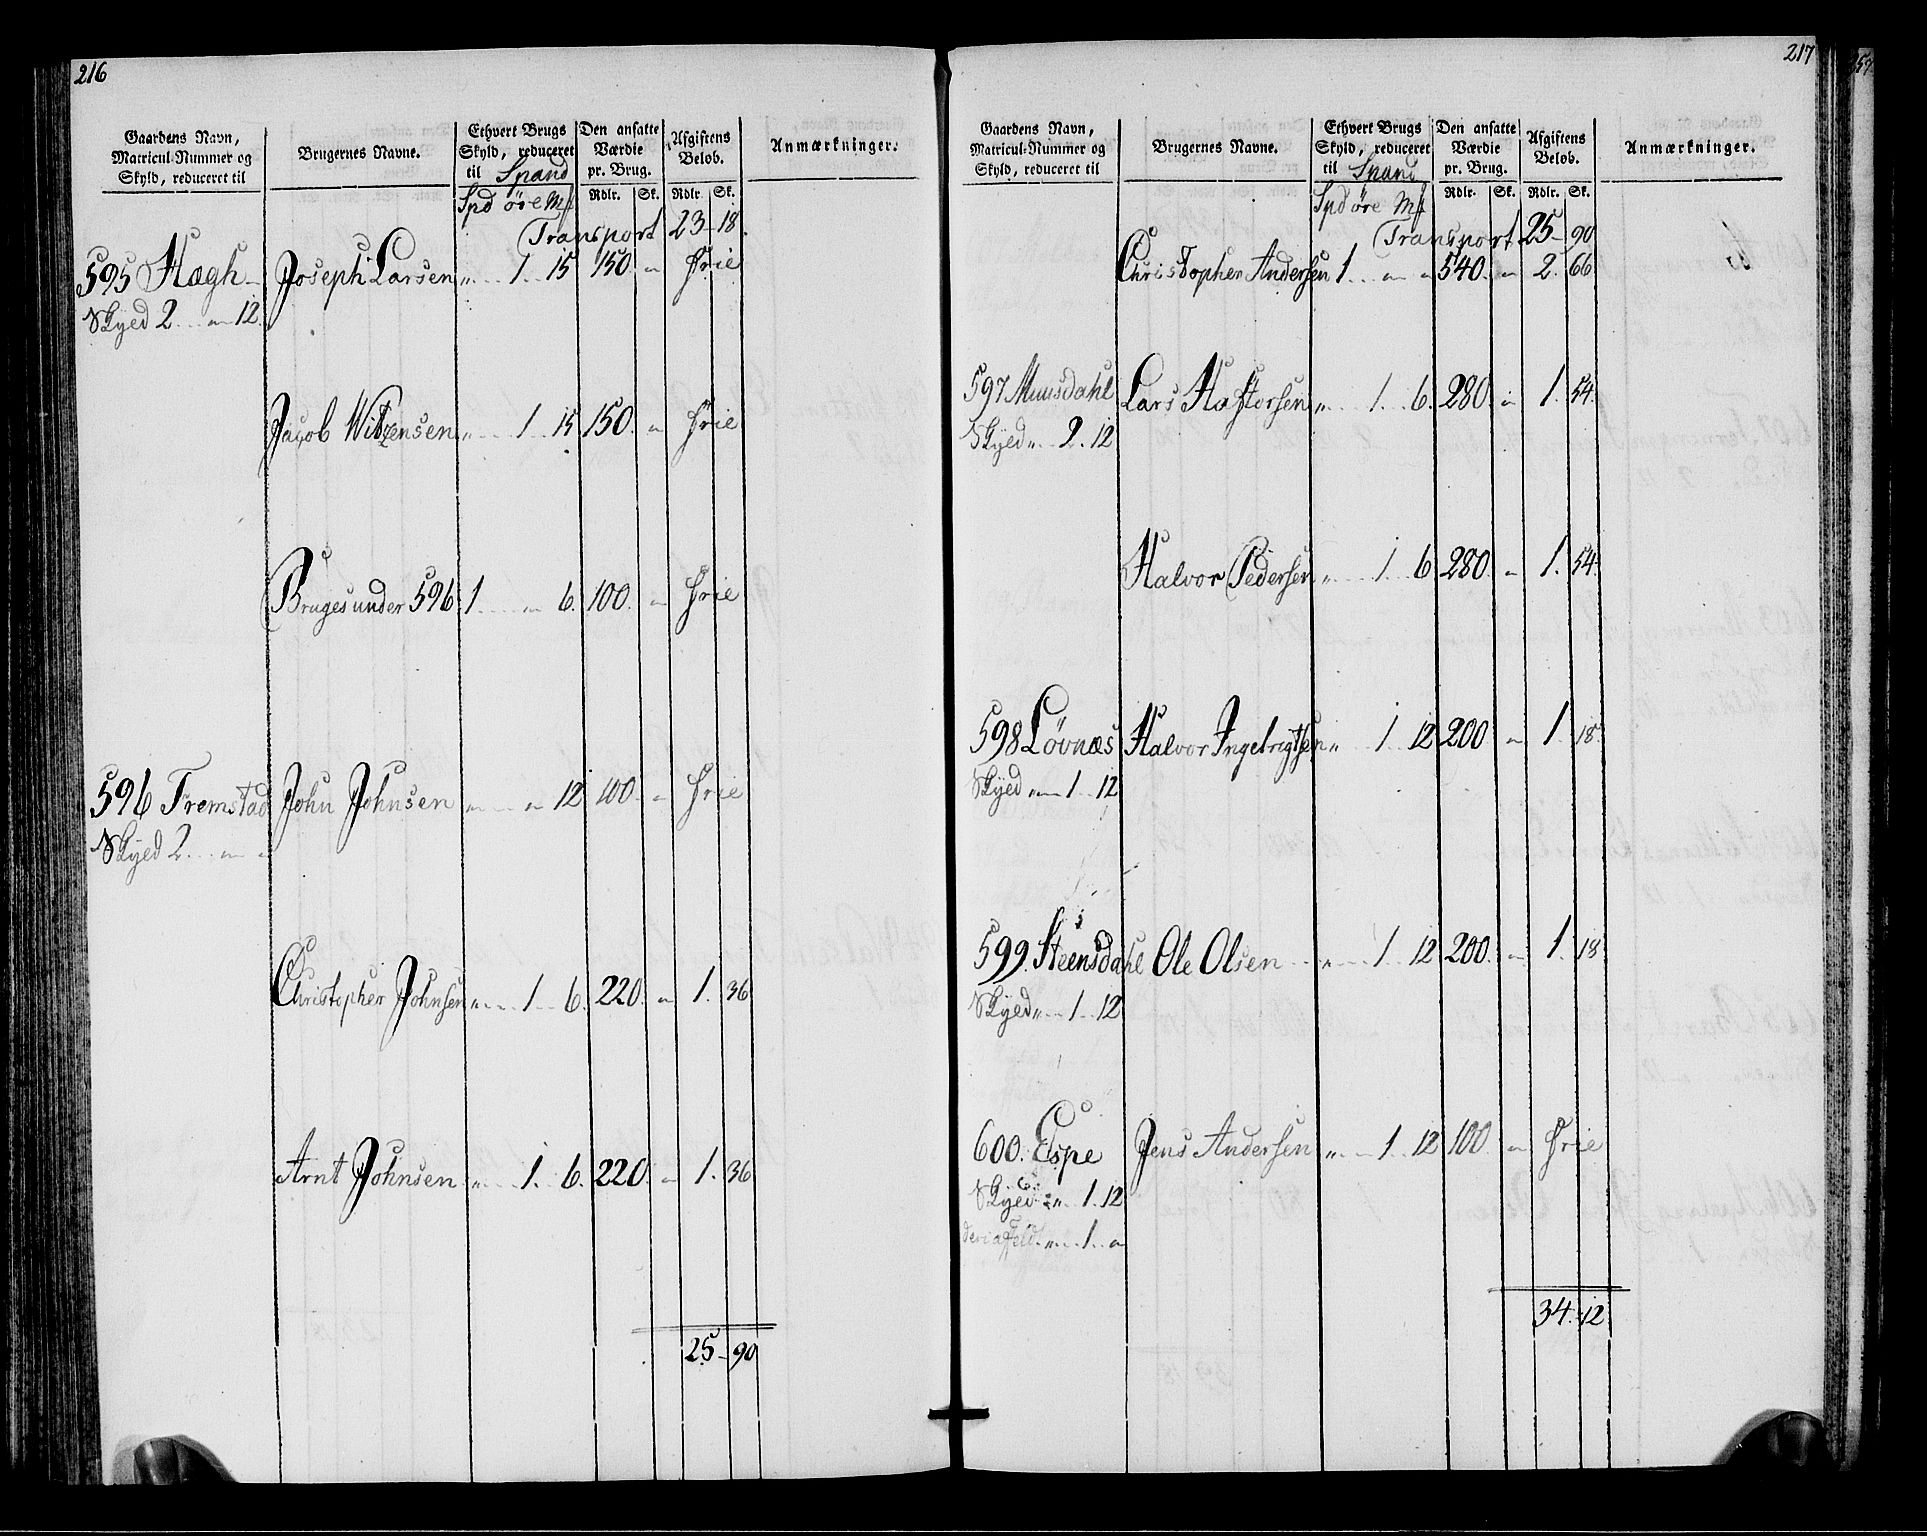 216
Gaardens Navn, Matricul-Nummer og Skyld, reduceret til
Brugernes Navne.
Ethvert Brugs Skyld, reduceret til Spand
Den ansatte Værdie pr. Brug.
Afgiftens Beløb.
Anmærkninger.
Spd øre Mk Rdlr. Sk. Rdlr. Sk.
Transport 23 - 18.
595 Hægh - Joseph Larsen „ 1 15 150 „ Frie
Skyld 2 „ 12.
Jacob Witzensen „ 1 15 150. „ Frie
Bruges under 596. 1 „ 6. 100. „ Frie
596 Fremstad John Johnsen „ „ 12 100. „ Frie
Skyld 2 „ „
Christopher Johnsen „ 1 6. 220. „ 1. 36
Arnt Johnsen „ 1. 6. 220. „ 1. 36
25 - 90
217
Gaardens Navn, Matricul-Nummer og Skyld, reduceret til
Brugernes Navne.
Ethvert Brugs Skyld, reduceret til Spand
Den ansatte Værdie pr. Brug.
Afgiftens Beløb.
Anmærkninger.
Spd øre Mk Rdlr. Sk. Rdlr. Sk.
Transport 25 - 90
Christopher Andersen 1 „ „ 540. „ 2. 66
597 Muusdahl Lars Haftorsen „ 1. 6. 280. „ 1. 54.
Skyld „ 2. 12
Halvor Pedersen „ 1. 6 280. „ 1. 54.
598 Løvnæs Halvor Ingebrigtsen „ 1. 12 200 „ 1. 18
Skyld „ 1. 12
599. Steensdahl Ole Olsen „ 1. 12 200. „ 1. 18
Skyld „ 1. 12
600. Espe Jens Andersen „ 1 12 100. „ Frie
Skyld „ 1. 12
„ 1. „
34. 12